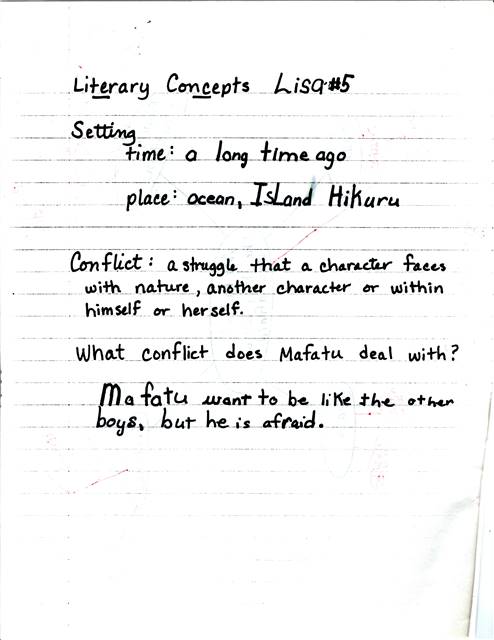 Literary Concepts Lisa #5
Setting
time: a long time ago
place: ocean, Island Hikuru
Conflict: a struggle that a character faces
with nature, another character or within
himself or herself.
What conflict does Mafatu deal with?
Mafatu want to be like the other
boys, but he is afraid.